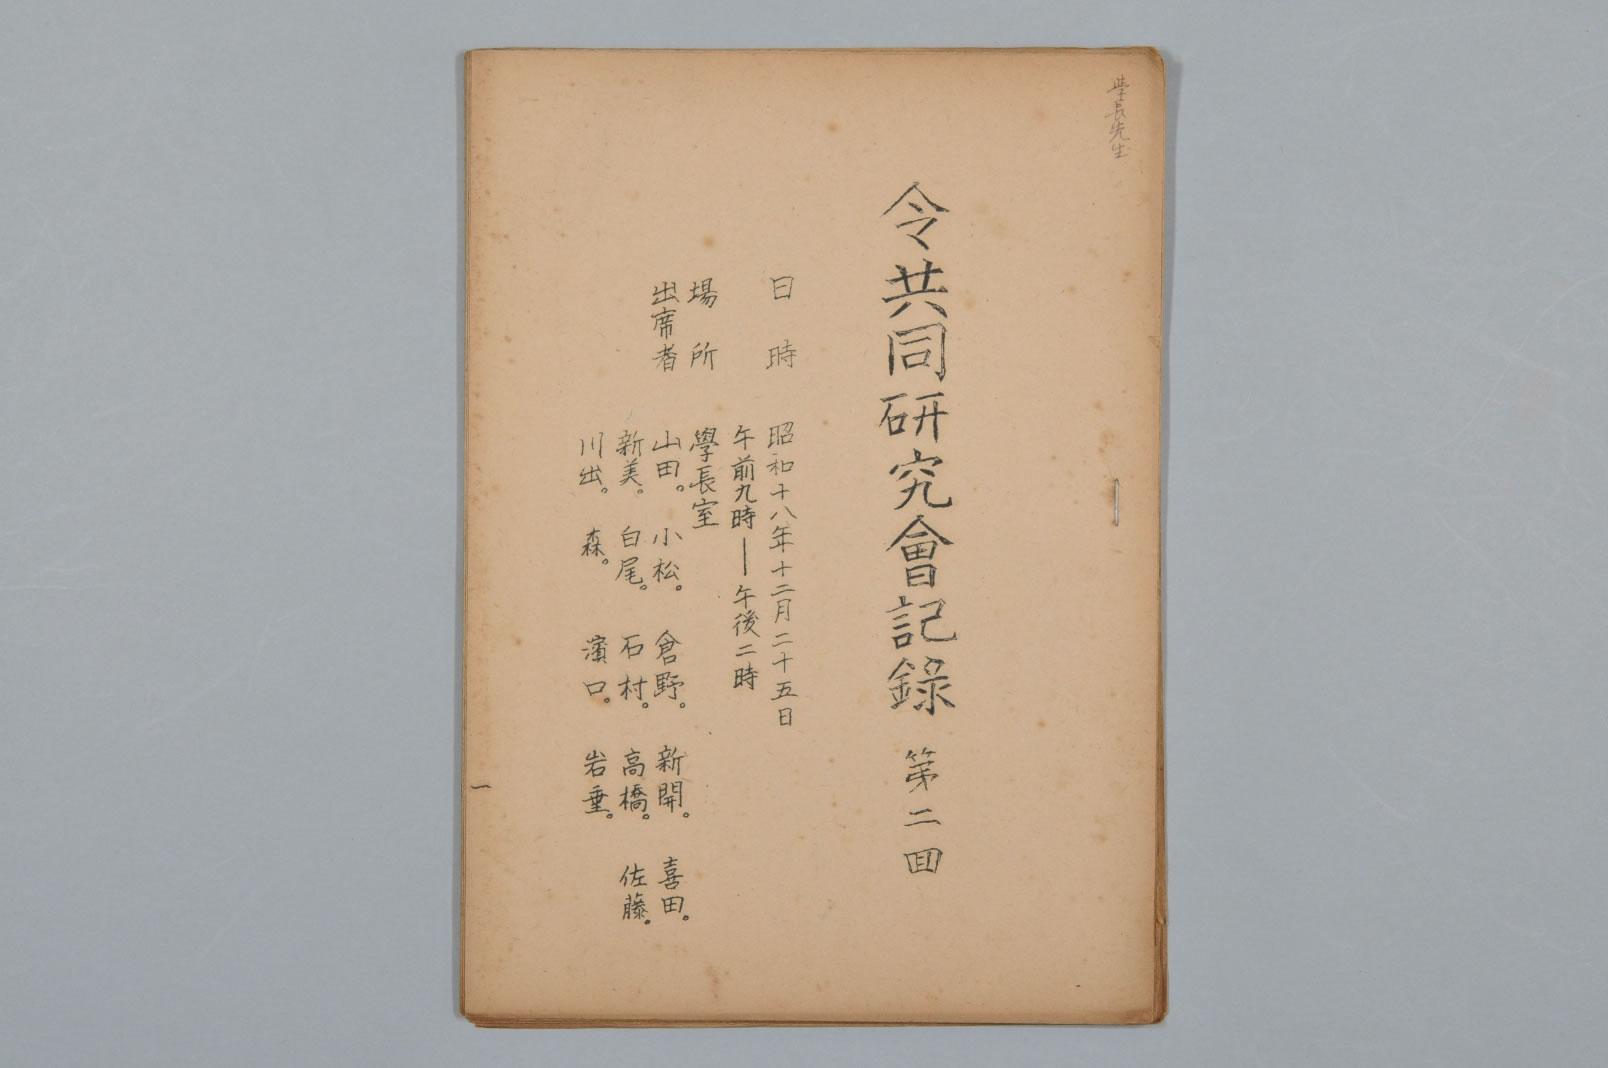 學長先生
令共同研究會記錄 第二回
日時 昭和十八年十二月二十五日
午前九時―午後二時
場所 學長室
出席者 山田。 小松。 倉野。 新開。 喜田。
新美。 白尾。 石村。 高橋。 佐藤。
川出。 森。 濱口。 岩垂。
一